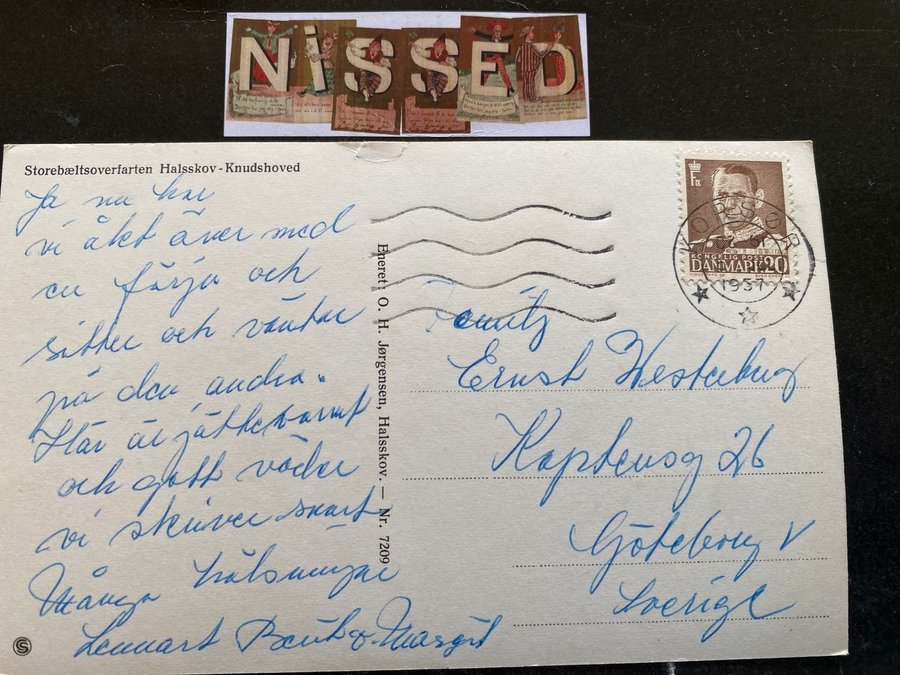 NiSSED
Storebæltsoverfarten Halsskov - Knudshoved
Ja nu har
vi åkt över med
en färja och
sitter och väntar
på den andra.
Här är jättevarmt
och gott väder
vi skriver snart
Många hälsningar
Lennart Berit o. Margit
Eneret: O. H. Jørgensen, Halsskov. — Nr. 7209
KORSØR
1957
KONGELIG POST
DANMARK 20
Familj
Ernst Westerberg
Kaptensg 26
Göteborg V
Sverige